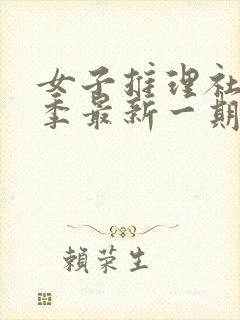 女子推理社
季最新一期
賴荣生